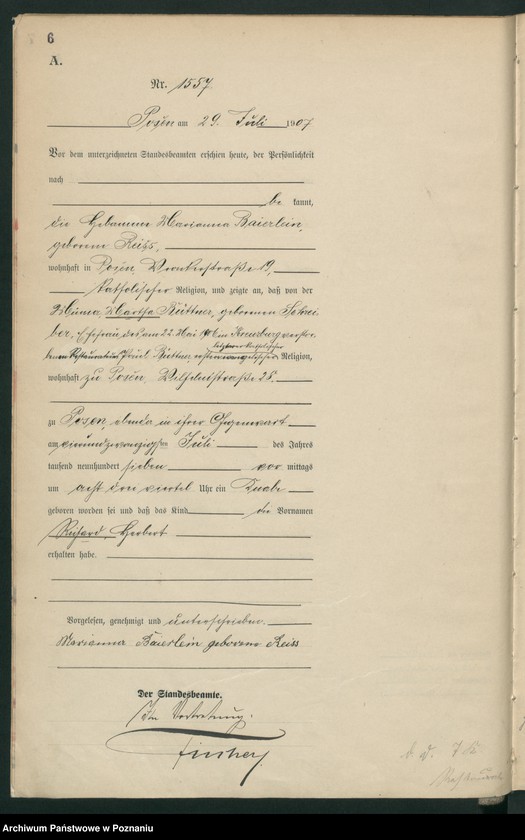 6
A.
Nr. 1557.
Posen am 29. Juli 1907
Vor dem unterzeichneten Standesbeamten erschien heute, der Persönlichkeit
nach
be kannt,
die Hebamme Marianna Baierlein,
geborene Reiss,
wohnhaft in Posen, Wronkerstraße 19,
katholischer Religion, und zeigte an, daß von der
Martha Büttner, geborenen Schrei-
ber, Ehefrau des am 22. Mai in Kreuzburg verstor-
benen Restaurateurs Büttner,
letzterer katholischer
evangelischer Religion,
wohnhaft zu Posen,
zu Posen, ebenda in ihrer Gegenwart
am einundzwanzigsten Juli des Jahres
tausend neunhundert sieben vor mittags
um acht drei viertel Uhr ein Knabe
geboren worden sei und daß das Kind die Vornamen
Richard Herbert
erhalten habe.
Vorgelesen, genehmigt und unterschrieben.
Marianna Baierlein geborene Reiss
Der Standesbeamte.
In Vertretung.
Archiwum Państwowe w Poznaniu
szukajwarchiwach.pl